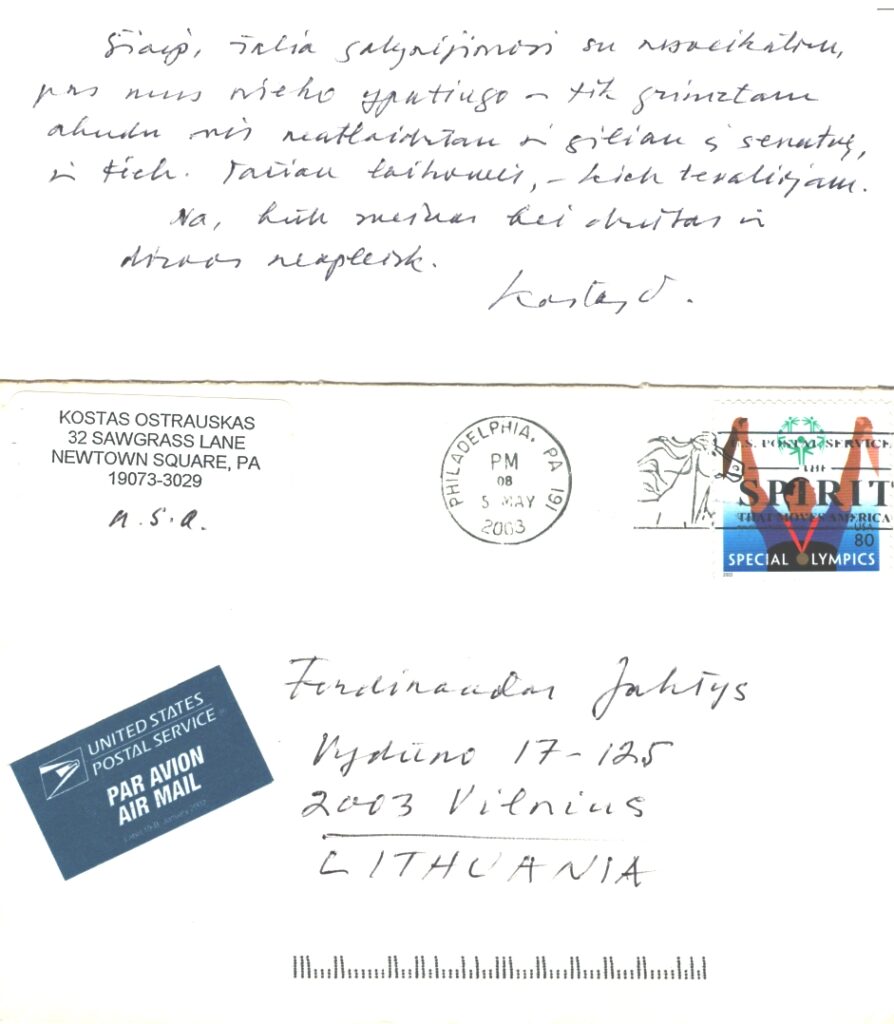 Šiaip, šalia galynėjimosi su nesveikatom,
pas mus nieko ypatingo – tik grimztam
abudu vis neatlaidžiau ir giliau į senatvę,
ir tiek. Tačiau laikomės, – kiek tevaliojam.
Na, būk sveikas bei drūtas ir
dievos neapleisk.
Kostas O.
KOSTAS OSTRAUSKAS
32 SAWGRASS LANE
NEWTOWN SQUARE, PA
19073-3029
U.S.A.
PHILADELPHIA, PA 191
PM
08
5 MAY
2003
U.S. POSTAL SERVICE
THE
SPIRIT
THAT MOVES AMERICA
USA
80
SPECIAL OLYMPICS
UNITED STATES
POSTAL SERVICE
PAR AVION
AIR MAIL
Ferdinandas Jakšys
Vydūno 17-125
2003 Vilnius
LITHUANIA